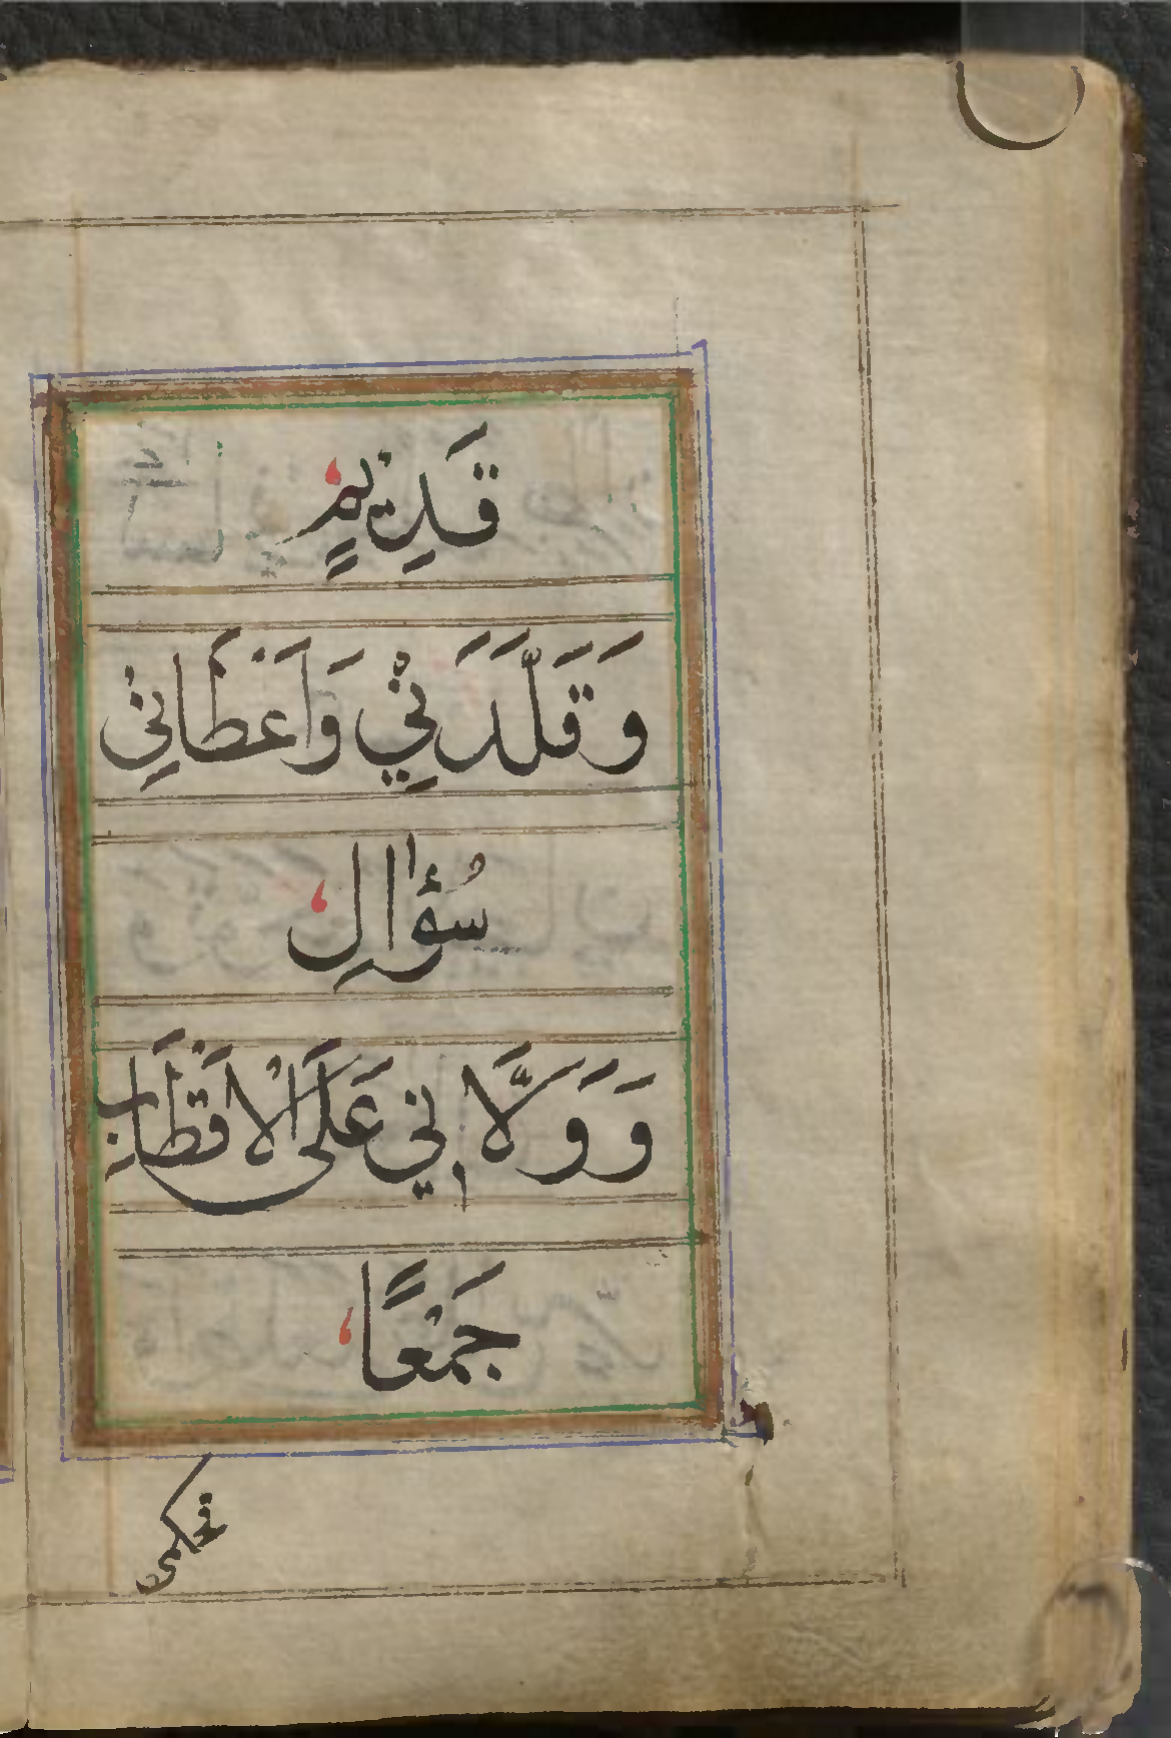 قَدِيْمٍ
وَقَلَّدَنِيْ وَاَعْطَانِيْ
سُؤَالِ
وَوَلَّانِي عَلَى الْاَقْطَابِ
جَمْعًا
فحكمى